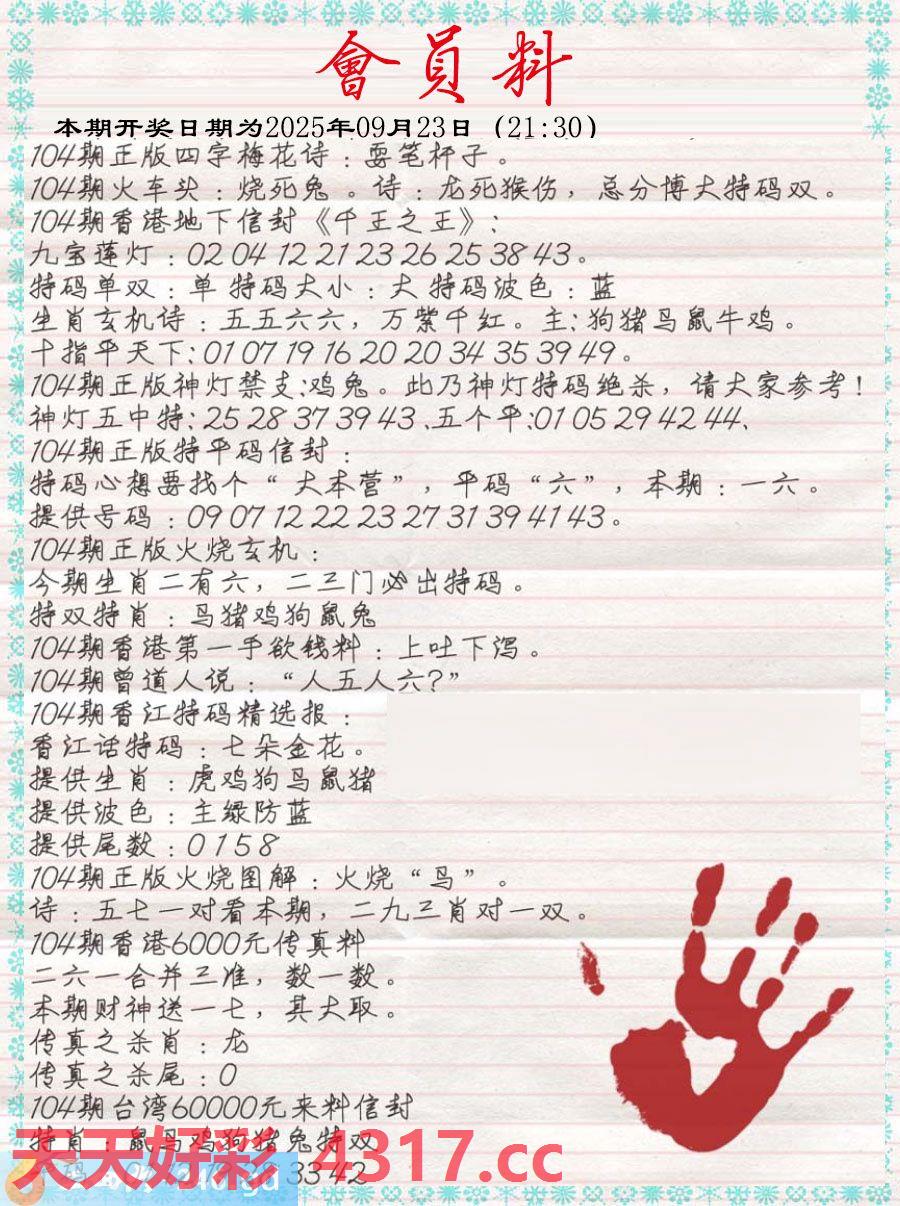 會員料
本期开奖日期为2025年09月23日（21:30）
104期正版四字梅花诗：耍笔杆子。
104期火车头：烧死兔 。诗：龙死猴伤，总分博大特码双。
104期香港地下信封《千王之王》:
九宝莲灯：02 04 12 21 23 26 25 38 43。
特码单双：单 特码大小：大 特码波色：蓝
生肖玄机诗：五五六六，万紫千红。主:狗猪马鼠牛鸡。
十指平天下:01 07 19 16 20 20 34 35 39 49。
104期正版神灯禁支:鸡兔。此乃神灯特码绝杀，请大家参考！
神灯五中特: 25 28 37 39 43 、五个平:01 05 29 42 44、
104期正版特平码信封：
特码心想要找个“大本营”，平码“六”，本期：一六。
提供号码：09 07 12 22 23 27 31 39 41 43。
104期正版火烧玄机：
今期生肖二有六，二三门必出特码。
特双特肖：马猪鸡狗鼠兔
104期香港第一手欲钱料：上吐下泻。
104期曾道人说：“人五人六?”
104期香江特码精选报：
香江话特码：七朵金花。
提供生肖：虎鸡狗马鼠猪
提供波色：主绿防蓝
提供尾数：0 1 5 8
104期正版火烧图解：火烧“马”。
诗：五七一对看本期，二九三肖对一双。
104期香港6000元传真料
二六一合并三准，数一数。
本期财神送一七，其大取。
传真之杀肖：龙
传真之杀尾：0
104期台湾60000元来料信封
特肖：鼠马鸡狗猪兔特双
天天好彩 4317.cc
33 42